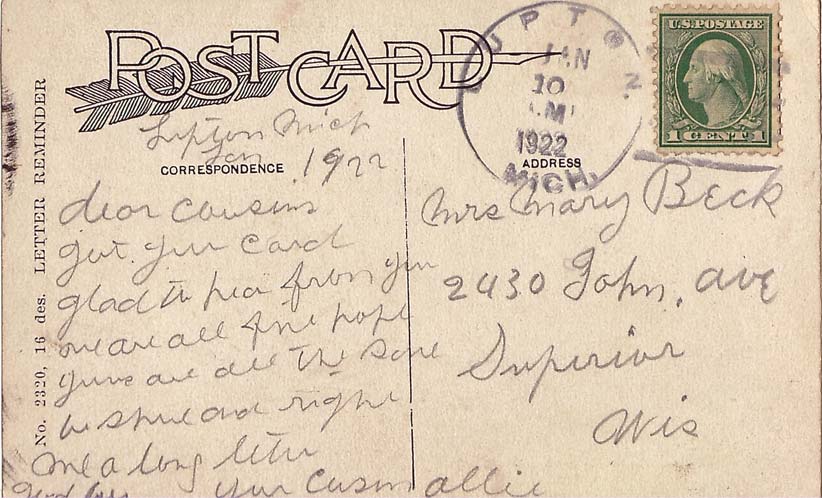 POST CARD
LUPTON
JAN
10
M
1922
MICH.
U.S. POSTAGE
1 CENT 1
Lupton Mich
Jan 1922
CORRESPONDENCE
ADDRESS
No. 2320, 16 des. LETTER REMINDER
dear cousins
got your card
glad to hear from you
we are all fine hope
yours are all the same
be shure and right
me a long letter
your cusin allie
Mrs Mary Beck
2430 John, ave
Superior
Wis